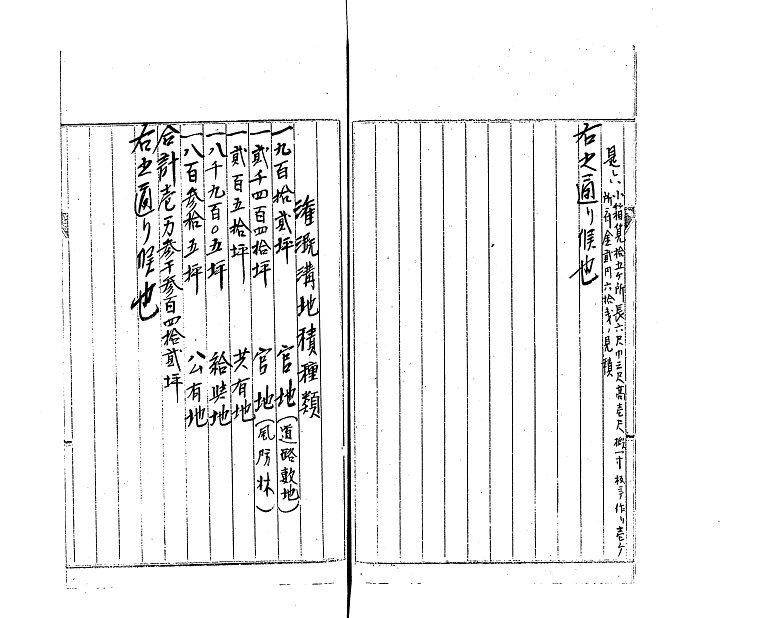 是ハ小箱筧拾五ヶ所長六尺巾三尺高壱尺板一寸板ヲ作リ壱ヶ
所有金貳円六拾銭ノ見積
右之通リ候也
灌漑溝地積種類
一九百拾貳坪 官地(道路敷地)
一貳千四百四拾坪 官地(風防林)
一貳百五拾坪 共有地
一八千九百〇五坪 給与地
一八百参拾五坪 公有地
合計壱万参千参百四拾貳坪
右之通リ候也